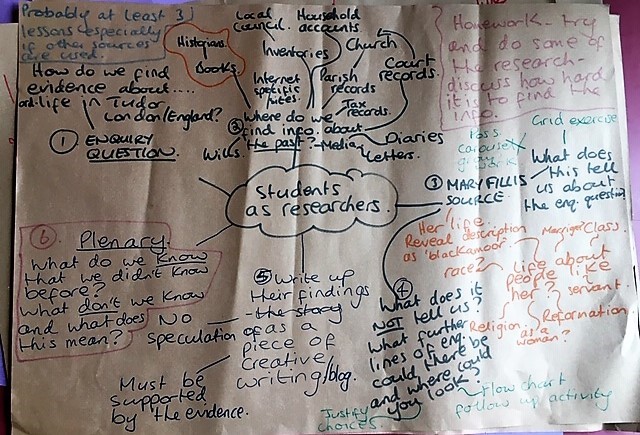 Probably at least 3
lessons especially
if other sources
are used.
How do we find
evidence about....
life in Tudor
London/England?
① ENQUIRY
QUESTION.
Histgians
Books
Local
council.
Household
accounts
Inventories
Church
Court
records.
Internet
specific
sites.
Parish
records
Tax
records.
② Where do we
find info. about
the past?
Diaries
Wills.
Media
Letters.
Homework - try
and do some of
the research-
discuss how hard
it is to find the
info.
Poss.
carousel
group
work
Grid exercise
③ MARY FILLIS
SOURCE
What does
this tell
us about
the enq. question?
Students
as researchers.
Her life.
Reveal description
as 'blackamoor'
race?
Marriage?
Class.
Life about
people like
her?
servant.
Religion
as a
woman?
Reformation
④
What does it
NOT tell us?
What further
lines of enq.
could there be
and where could
you look?
Flow chart
follow up activity
Justify
choices
⑤ Write up
their findings
the story
as a
piece of
creative
writing/blog.
No
Speculation
Must be
supported
by the evidence.
⑥ Plenary
What do we know
that we didn't know
before?
What don't we know
and what does
this mean?